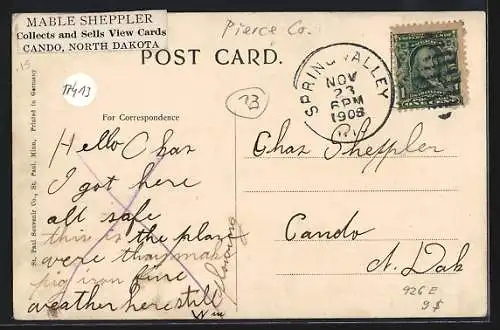 MABLE SHEPPLER
Collects and Sells View Cards
CANDO, NORTH DAKOTA
Pierce Co.
POST CARD.
.15
TP413
23
SPRING VALLEY
NOV
23
6PM
1908
WIS.
1
For Correspondence
St. Paul Souvenir Co., St. Paul, Minn, Printed in Germany
Hello Chas
I got here
all safe
this is the plan
were they make
pig iron fine
weather here still
Wm
Chas Sheppler
Cando
N. Dak
926E
9$